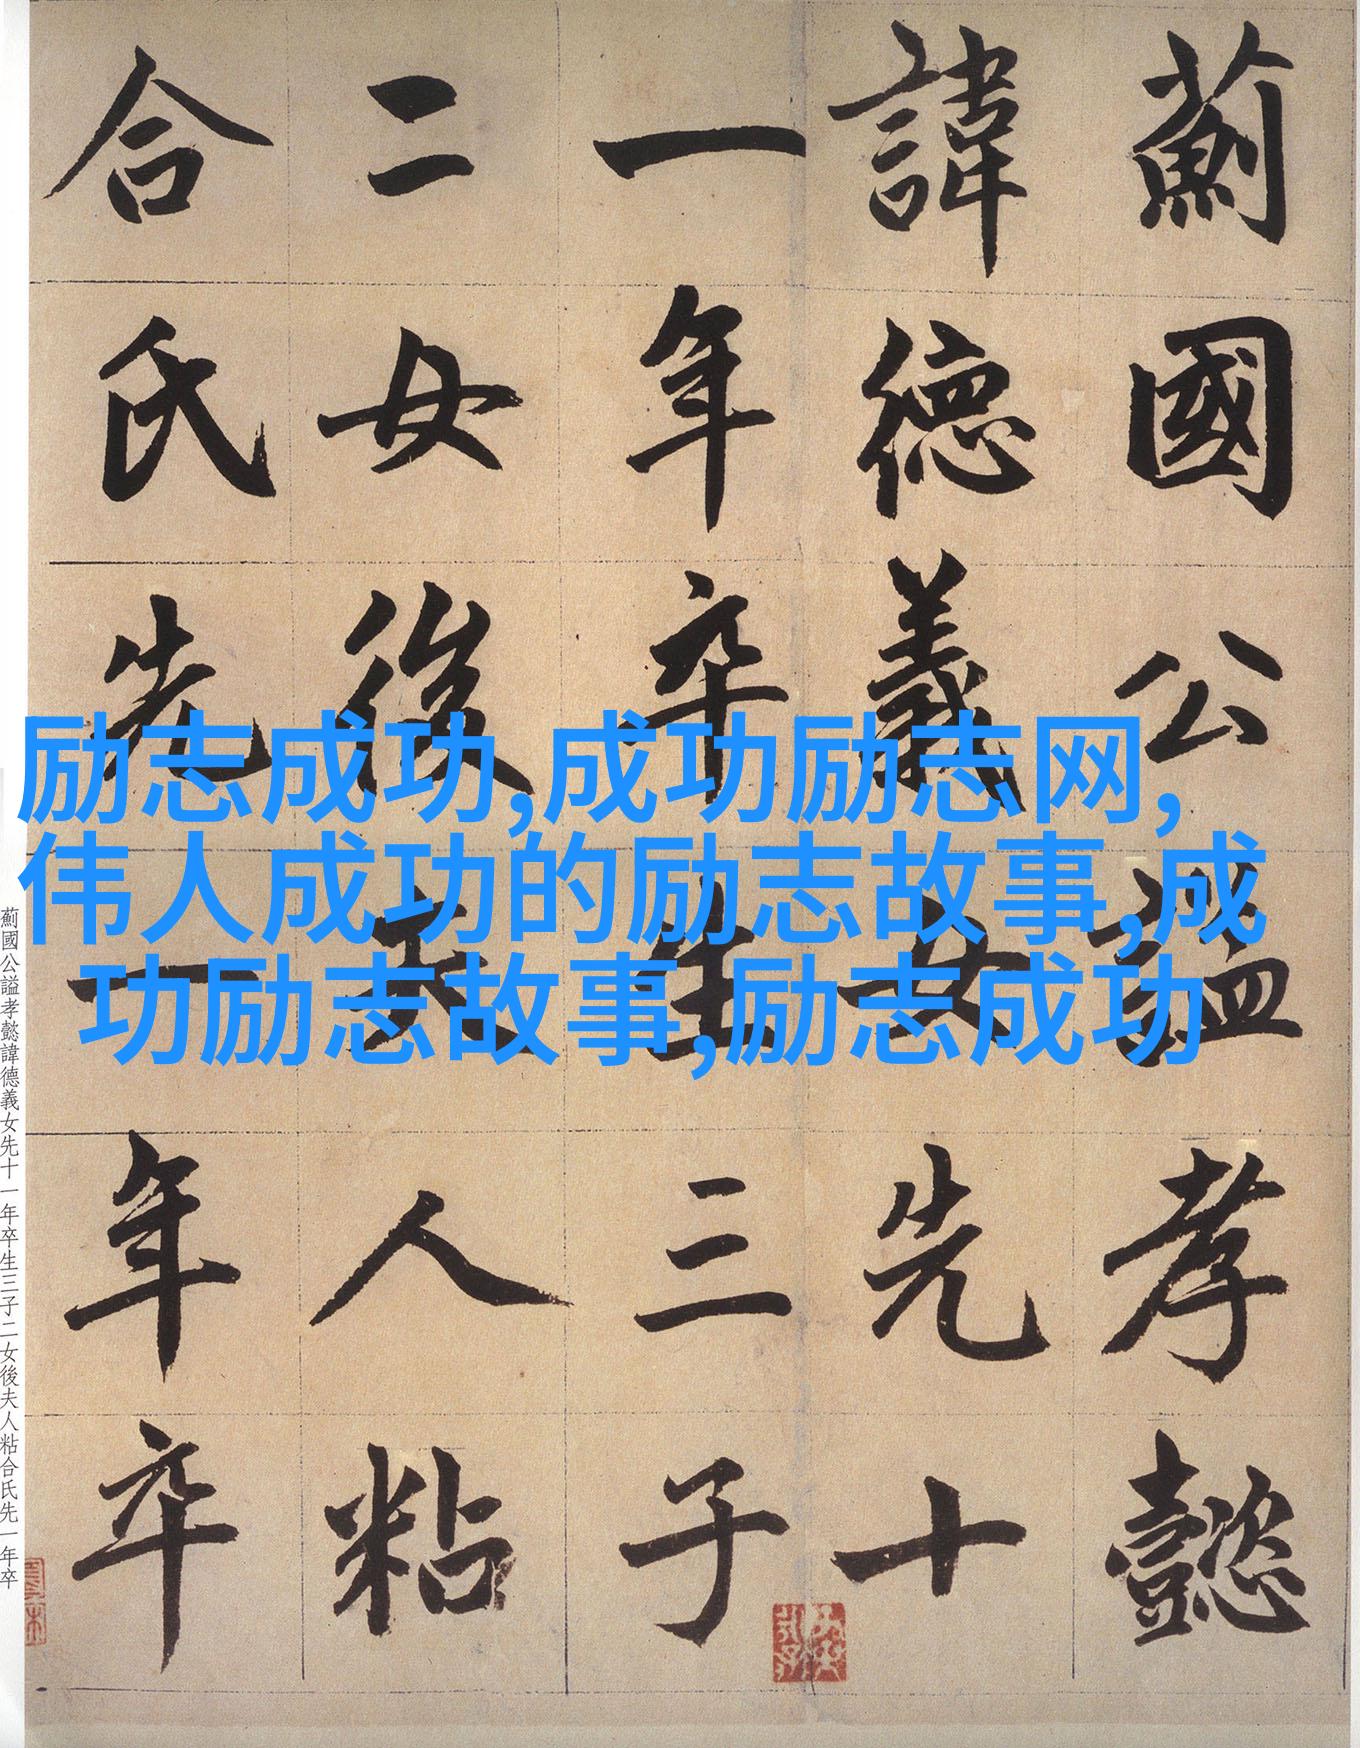 薊國公謚孝懿
諱德義女先十
一年卒生三子
二女後夫人粘
合氏先一年卒
励志成功,成功励志网,
伟人成功的励志故事,成
功励志故事,励志成功
薊國公謚孝懿諱德義女先十一年卒生三子二女後夫人粘合氏先一年卒